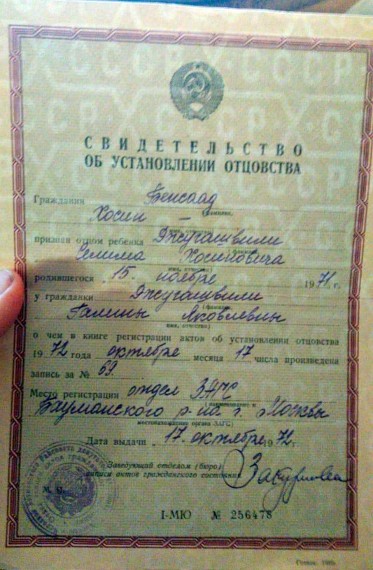 СВИДЕТЕЛЬСТВО
ОБ УСТАНОВЛЕНИИ ОТЦОВСТВА
Гражданин Бенсаад
фамилия,
Хосин –
признан отцом ребенка Джугашвили
Селима Хосиновича
имя, отчество
родившегося 15 ноября 1971 г.
у гражданки Джугашвили
Галины Яковлевны
имя, отчество
о чем в книге регистрации актов об установлении отцовства
1972 года октября месяца 17 числа произведена
запись за № 69
Место регистрации отдел ЗАГС
Бауманского р-на г. Москвы
местонахождение органа ЗАГС
Дата выдачи „17" октября 1972 г.
Заведующий отделом (бюро)
записи актов гражданского состояния
М. П.
I-МЮ № 256478